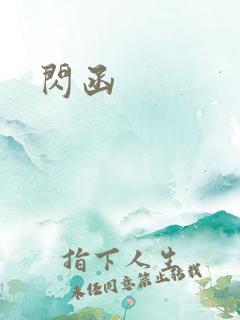 閃函
指下人生
未任同意禁止转载